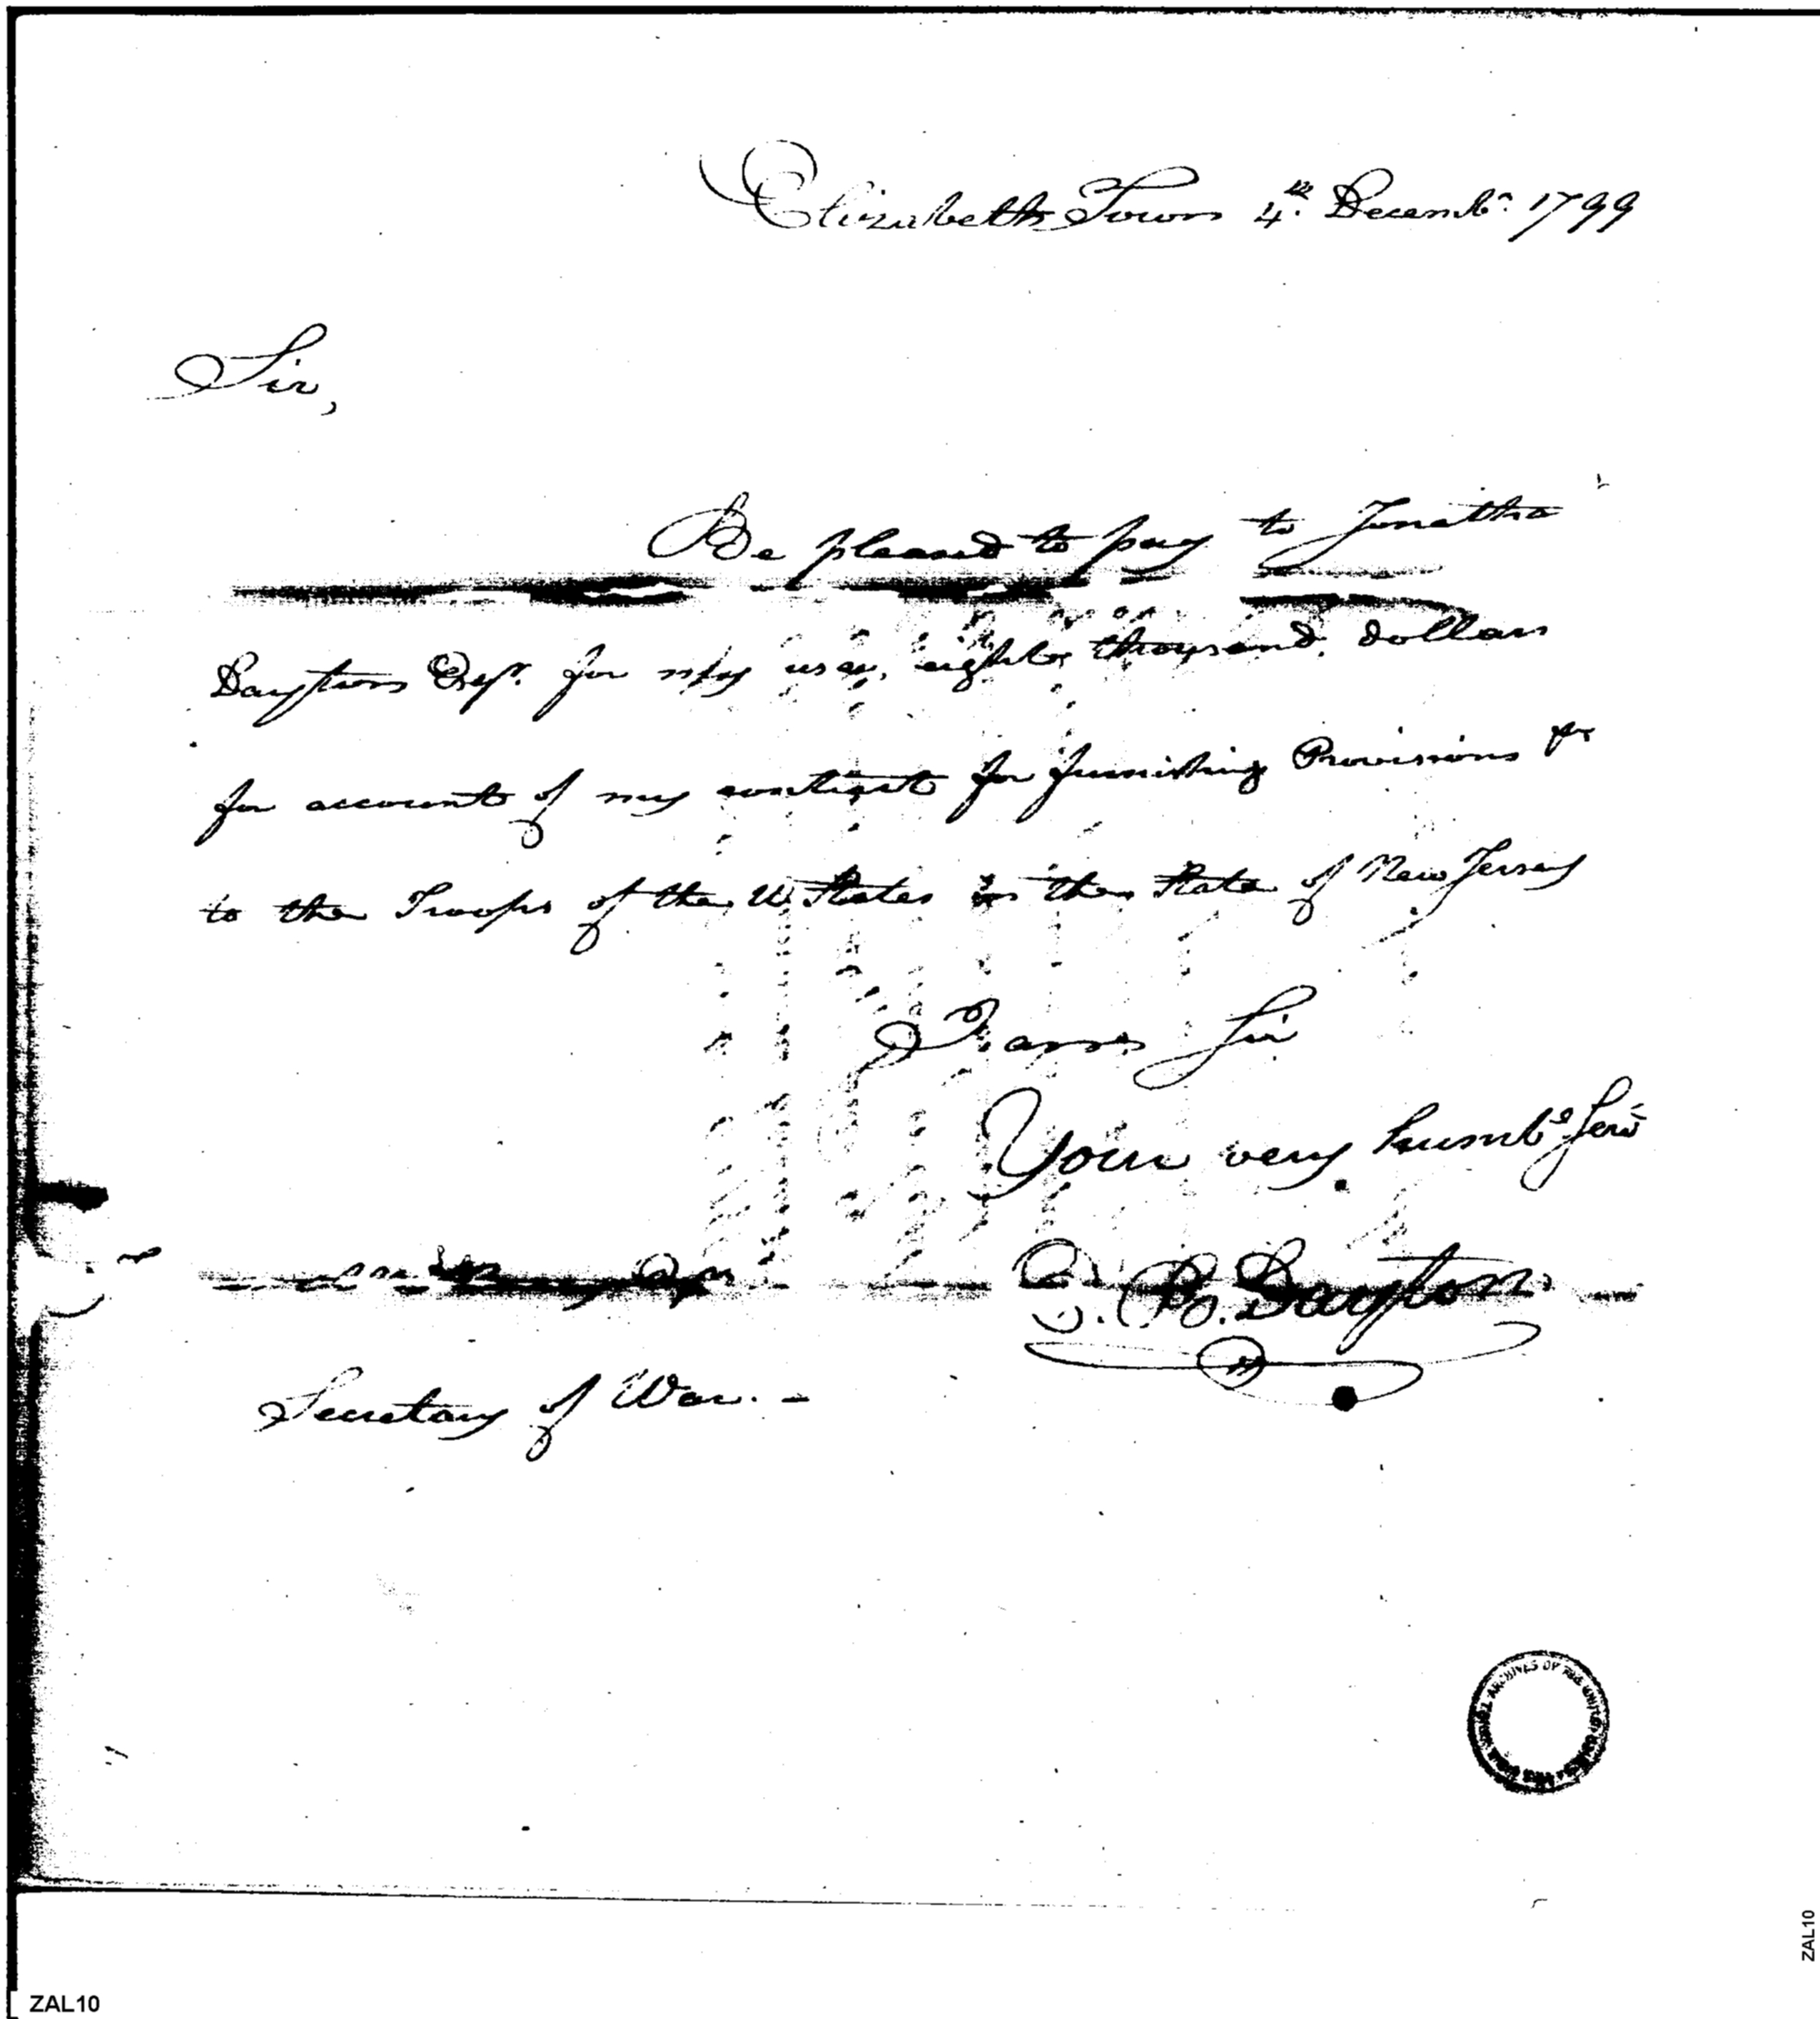 Elizabeth Town 4th. Decembr. 1799
Sir,
Be pleased to pay to Jonatha
Dayton Esqr. for my use, eight thousand dollars
for account of my contract for furnishing Provisions &c
to the Troops of the U States in the State of New Jersey
I am Sir
Your very humbe Servt
E. B. Dayton
Secretary of War. -
ARCHIVES OF THE UNITED STATES
ZAL10
ZAL10